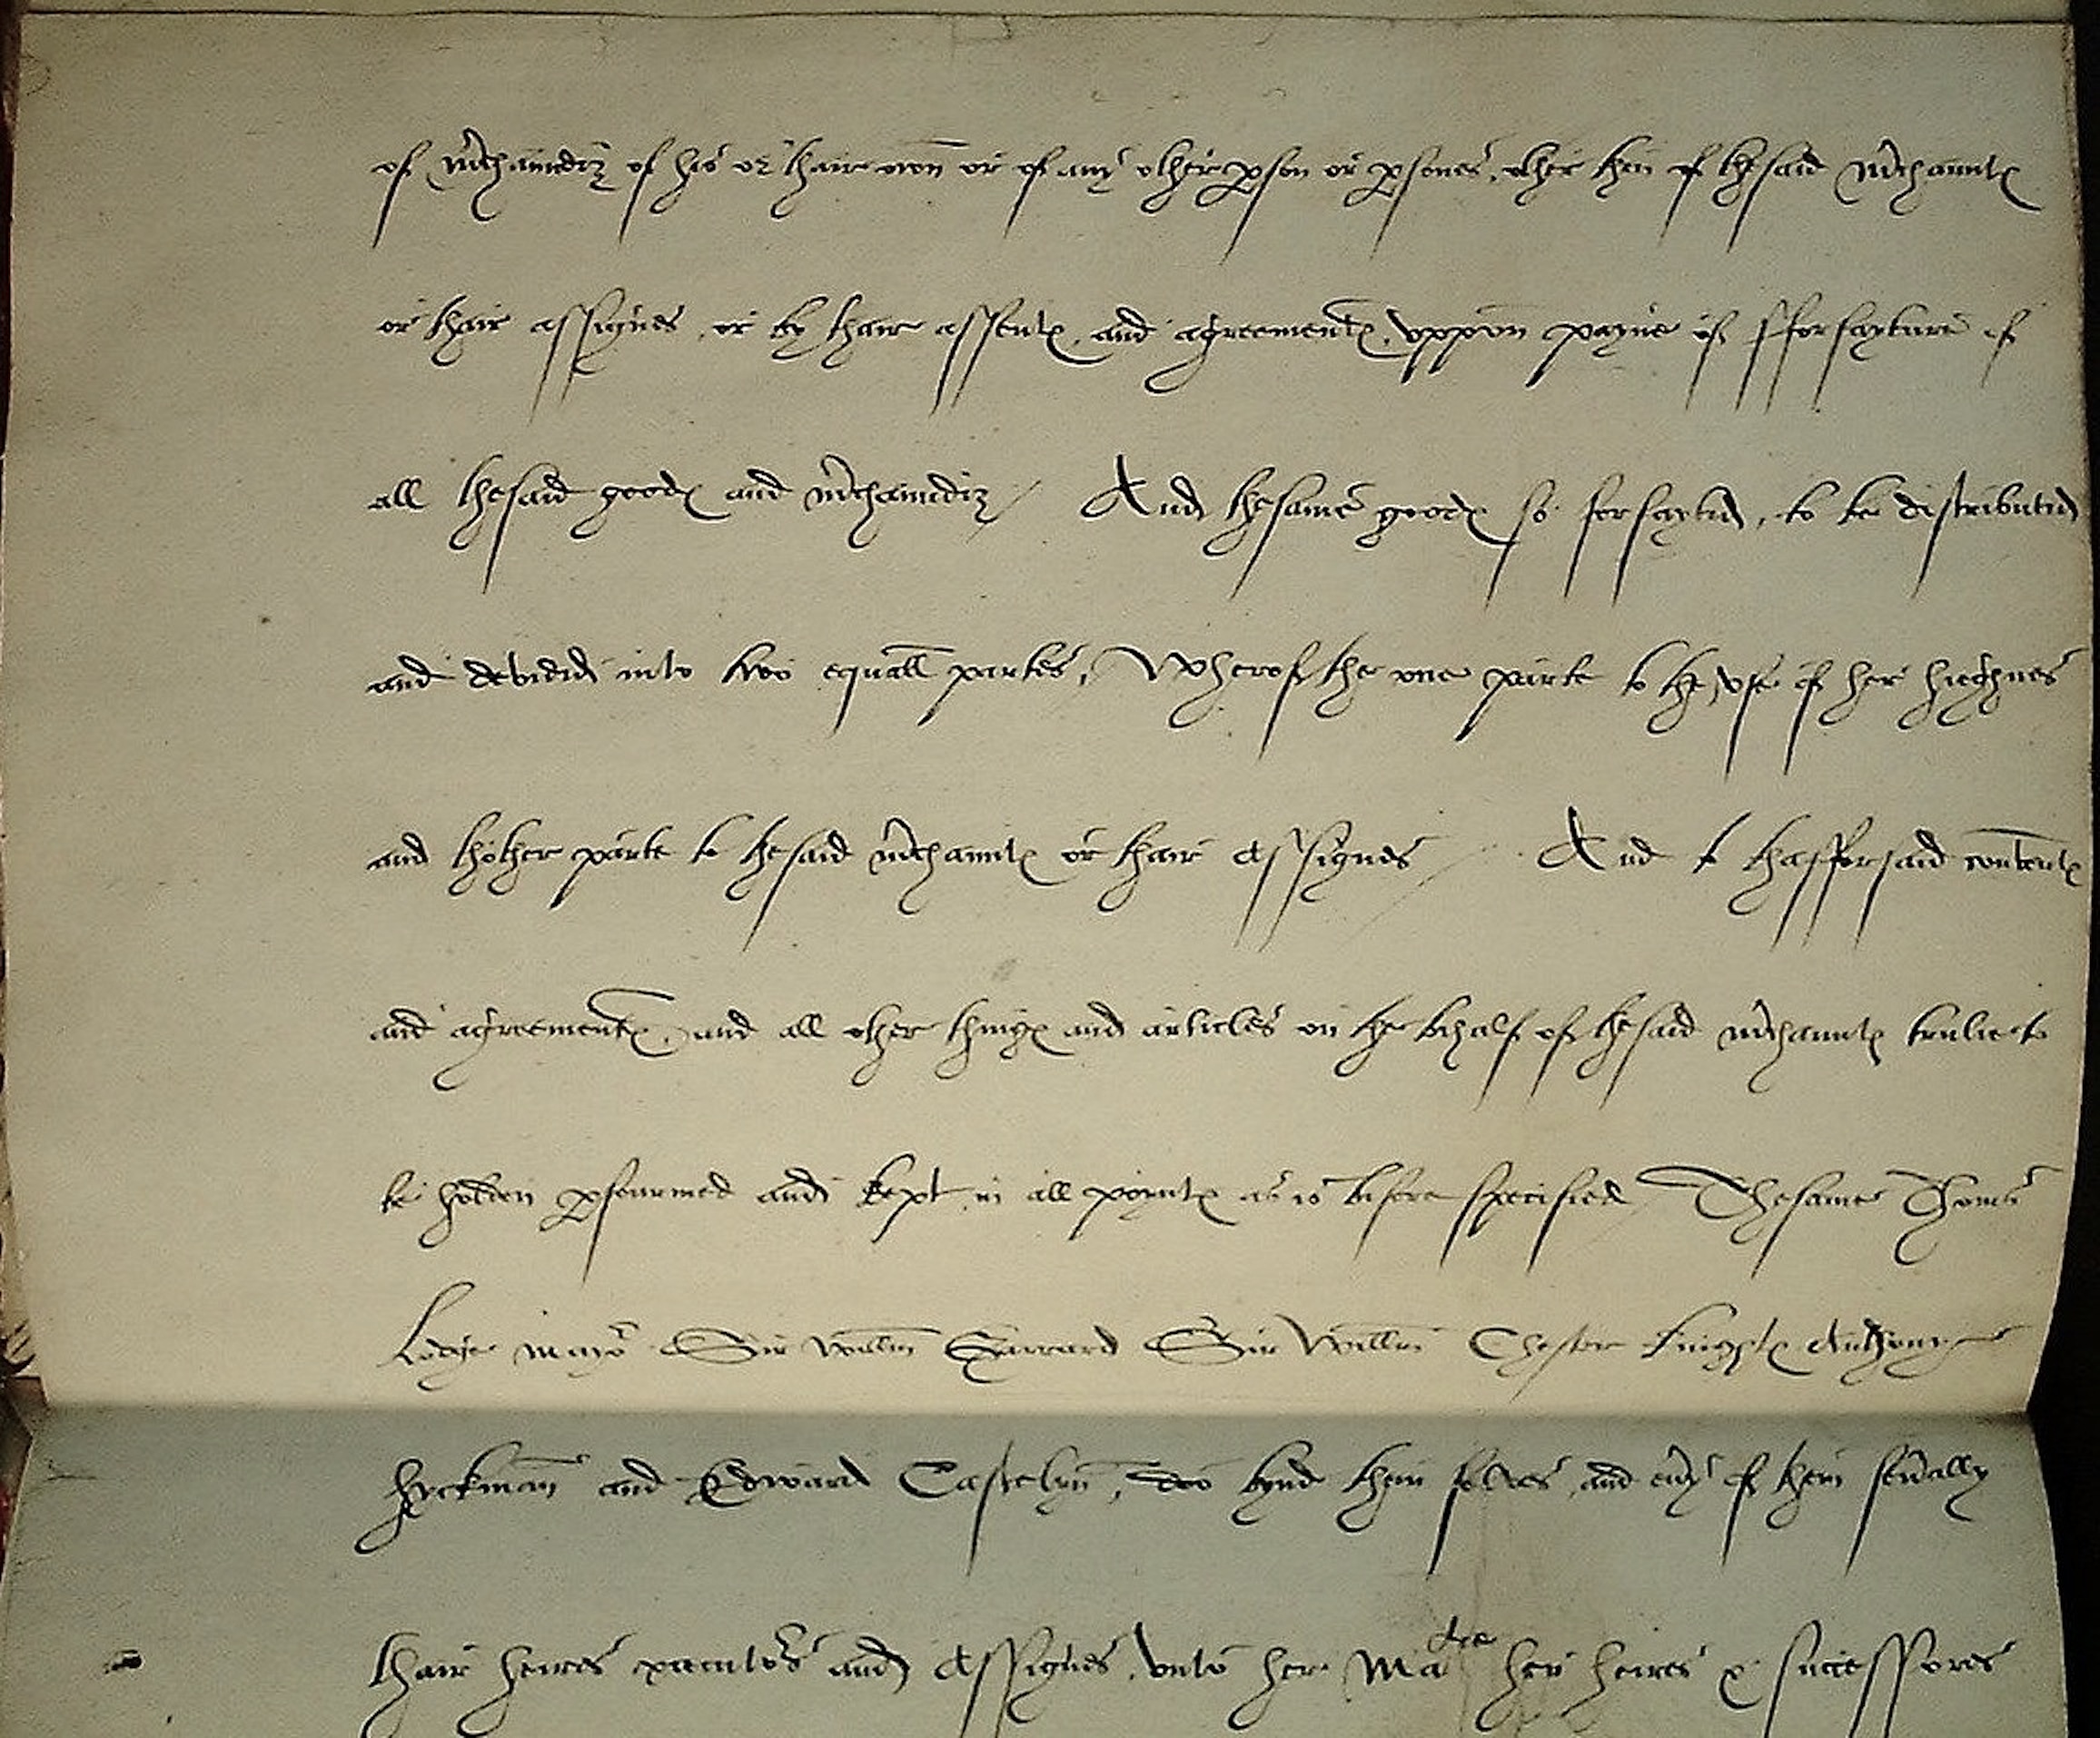 of m̃chaundiz of his or thair own̄ or of any other ꝑson or ꝑsones, other then of thesaid m̃chauntꝭ
or thair assignes, or by thair assentꝭ, and agreementꝭ, vppon payne of fforfayture of
all thesaid goodꝭ and m̃chaundiz / And thesame goodꝭ so forfaytid, to be distributid
and devidid into two equall partes, Wherof the one parte to the vse of her highnes
and thother parte to thesaid m̃chauntꝭ or thair Assignes / And to thafforsaid contentꝭ
and agreementꝭ, and all other thingꝭ and articles on the behalf of thesaid m̃chauntꝭ trulie to
be holden ꝑfourmed and kept in all poyntꝭ as is before specified / Thesame Thoms̃
Lodge mayoʳ Sir Willm̄ Garrard Sir Willm̄ Chester knightꝭ Anthony
hyckman̄ and Edward Castelyn̄, doo bynd them selves, and eũy of them seũally
thair heires executoʳs and Assignes, vnto her Maᵗⁱᵉ her heires & successores